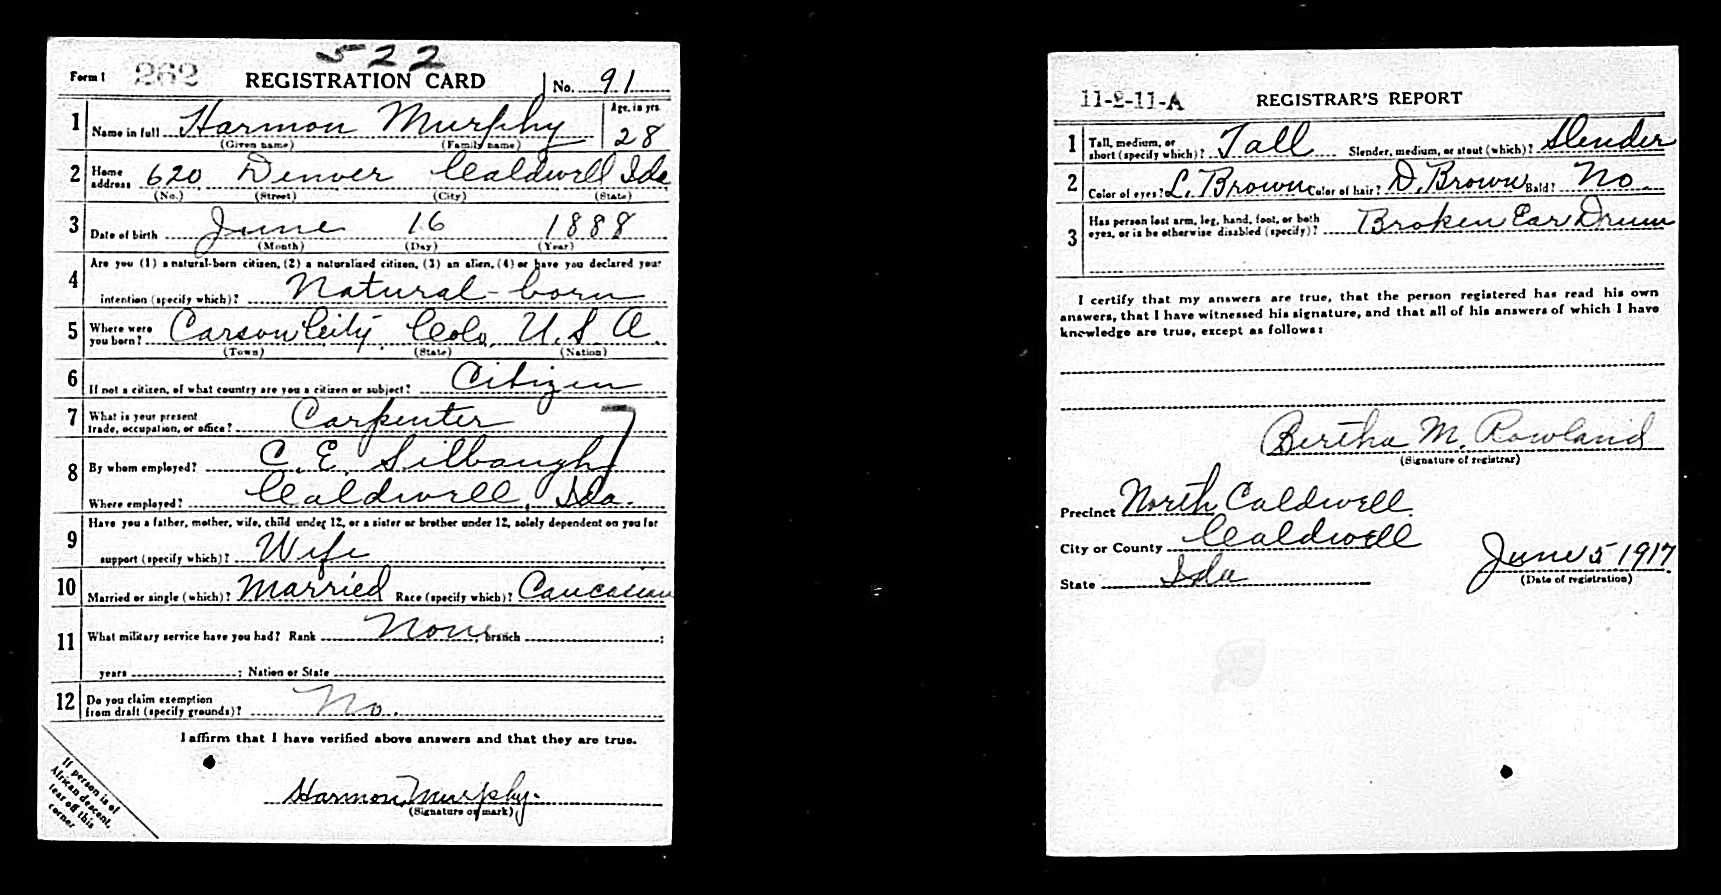 522
Form 1 262 REGISTRATION CARD No. 91
1 Name in full Harmon Murphy Age, in yrs. 28
(Given name) (Family name)
2 Home address 620 Denver Caldwell Ida
(No.) (Street) (City) (State)
3 Date of birth June 16 1888
(Month) (Day) (Year)
4 Are you (1) a natural-born citizen, (2) a naturalized citizen, (3) an alien, (4) or have you declared your
intention (specify which)? Natural-born
5 Where were you born? Carson City Colo. U.S.A.
(Town) (State) (Nation)
6 If not a citizen, of what country are you a citizen or subject? Citizen
7 What is your present trade, occupation, or office? Carpenter
8 By whom employed? C. E. Silbaugh
Where employed? Caldwell, Ida.
9 Have you a father, mother, wife, child under 12, or a sister or brother under 12, solely dependent on you for
support (specify which)? Wife
10 Married or single (which)? Married Race (specify which)? Caucasian
11 What military service have you had? Rank None branch ;
years ; Nation or State
12 Do you claim exemption from draft (specify grounds)? No.
I affirm that I have verified above answers and that they are true.
Harmon Murphy.
(Signature or mark)
If person is of
African descent,
tear off this
corner
11-2-11-A REGISTRAR'S REPORT
1 Tall, medium, or short (specify which)? Tall Slender, medium, or stout (which)? Slender
2 Color of eyes? L. Brown Color of hair? D. Brown Bald? No.
3 Has person lost arm, leg, hand, foot, or both
eyes, or is he otherwise disabled (specify)? Broken Ear Drum
I certify that my answers are true, that the person registered has read his own
answers, that I have witnessed his signature, and that all of his answers of which I have
knowledge are true, except as follows:
Bertha M. Rowland
(Signature of registrar)
Precinct North Caldwell.
City or County Caldwell
State Ida
June 5 1917
(Date of registration)